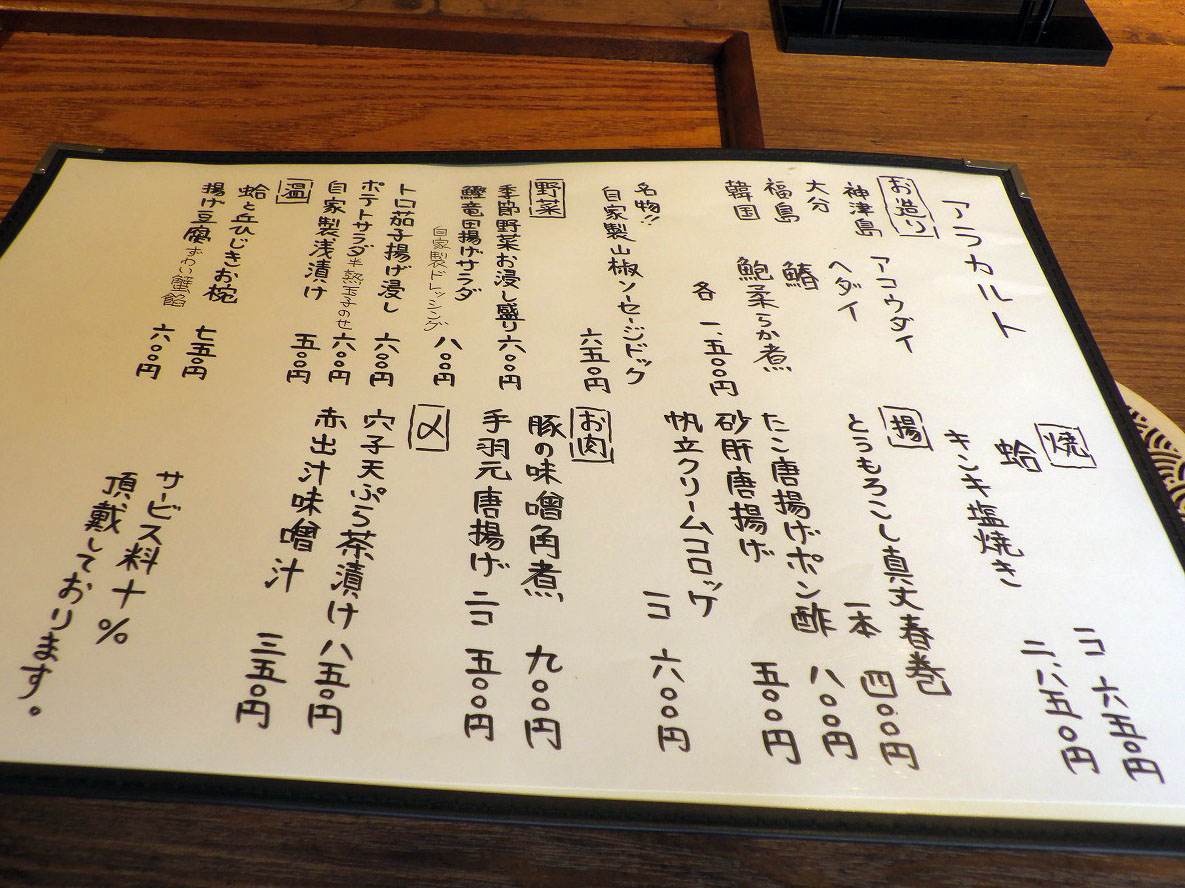 アラカルト
お造り
神津島 アコウダイ
大分 ヘダイ
福島 鰆
韓国 鮑柔らか煮
各 一、五〇〇円
名物!!
自家製山椒ソーセージドック
六五〇円
野菜
季節野菜お浸し盛り 六〇〇円
鰹竜田揚げサラダ
自家製ドレッシング 八〇〇円
トロ茄子揚げ浸し 六〇〇円
ポテトサラダ半熟玉子のせ 六〇〇円
自家製浅漬け 五〇〇円
温
蛤と岩ひじきお椀 七五〇円
揚げ豆腐ずわい蟹餡 六〇〇円
焼
蛤 二コ 六五〇円
キンキ塩焼き 二、八五〇円
揚
とうもろこし真丈春巻
一本 四〇〇円
たこ唐揚げポン酢 八〇〇円
砂肝唐揚げ 五〇〇円
帆立クリームコロッケ
二コ 六〇〇円
お肉
豚の味噌角煮 九〇〇円
手羽元唐揚げ 二コ 五〇〇円
〆
穴子天ぷら茶漬け 八五〇円
赤出汁味噌汁 三五〇円
サービス料十%
頂戴しております。